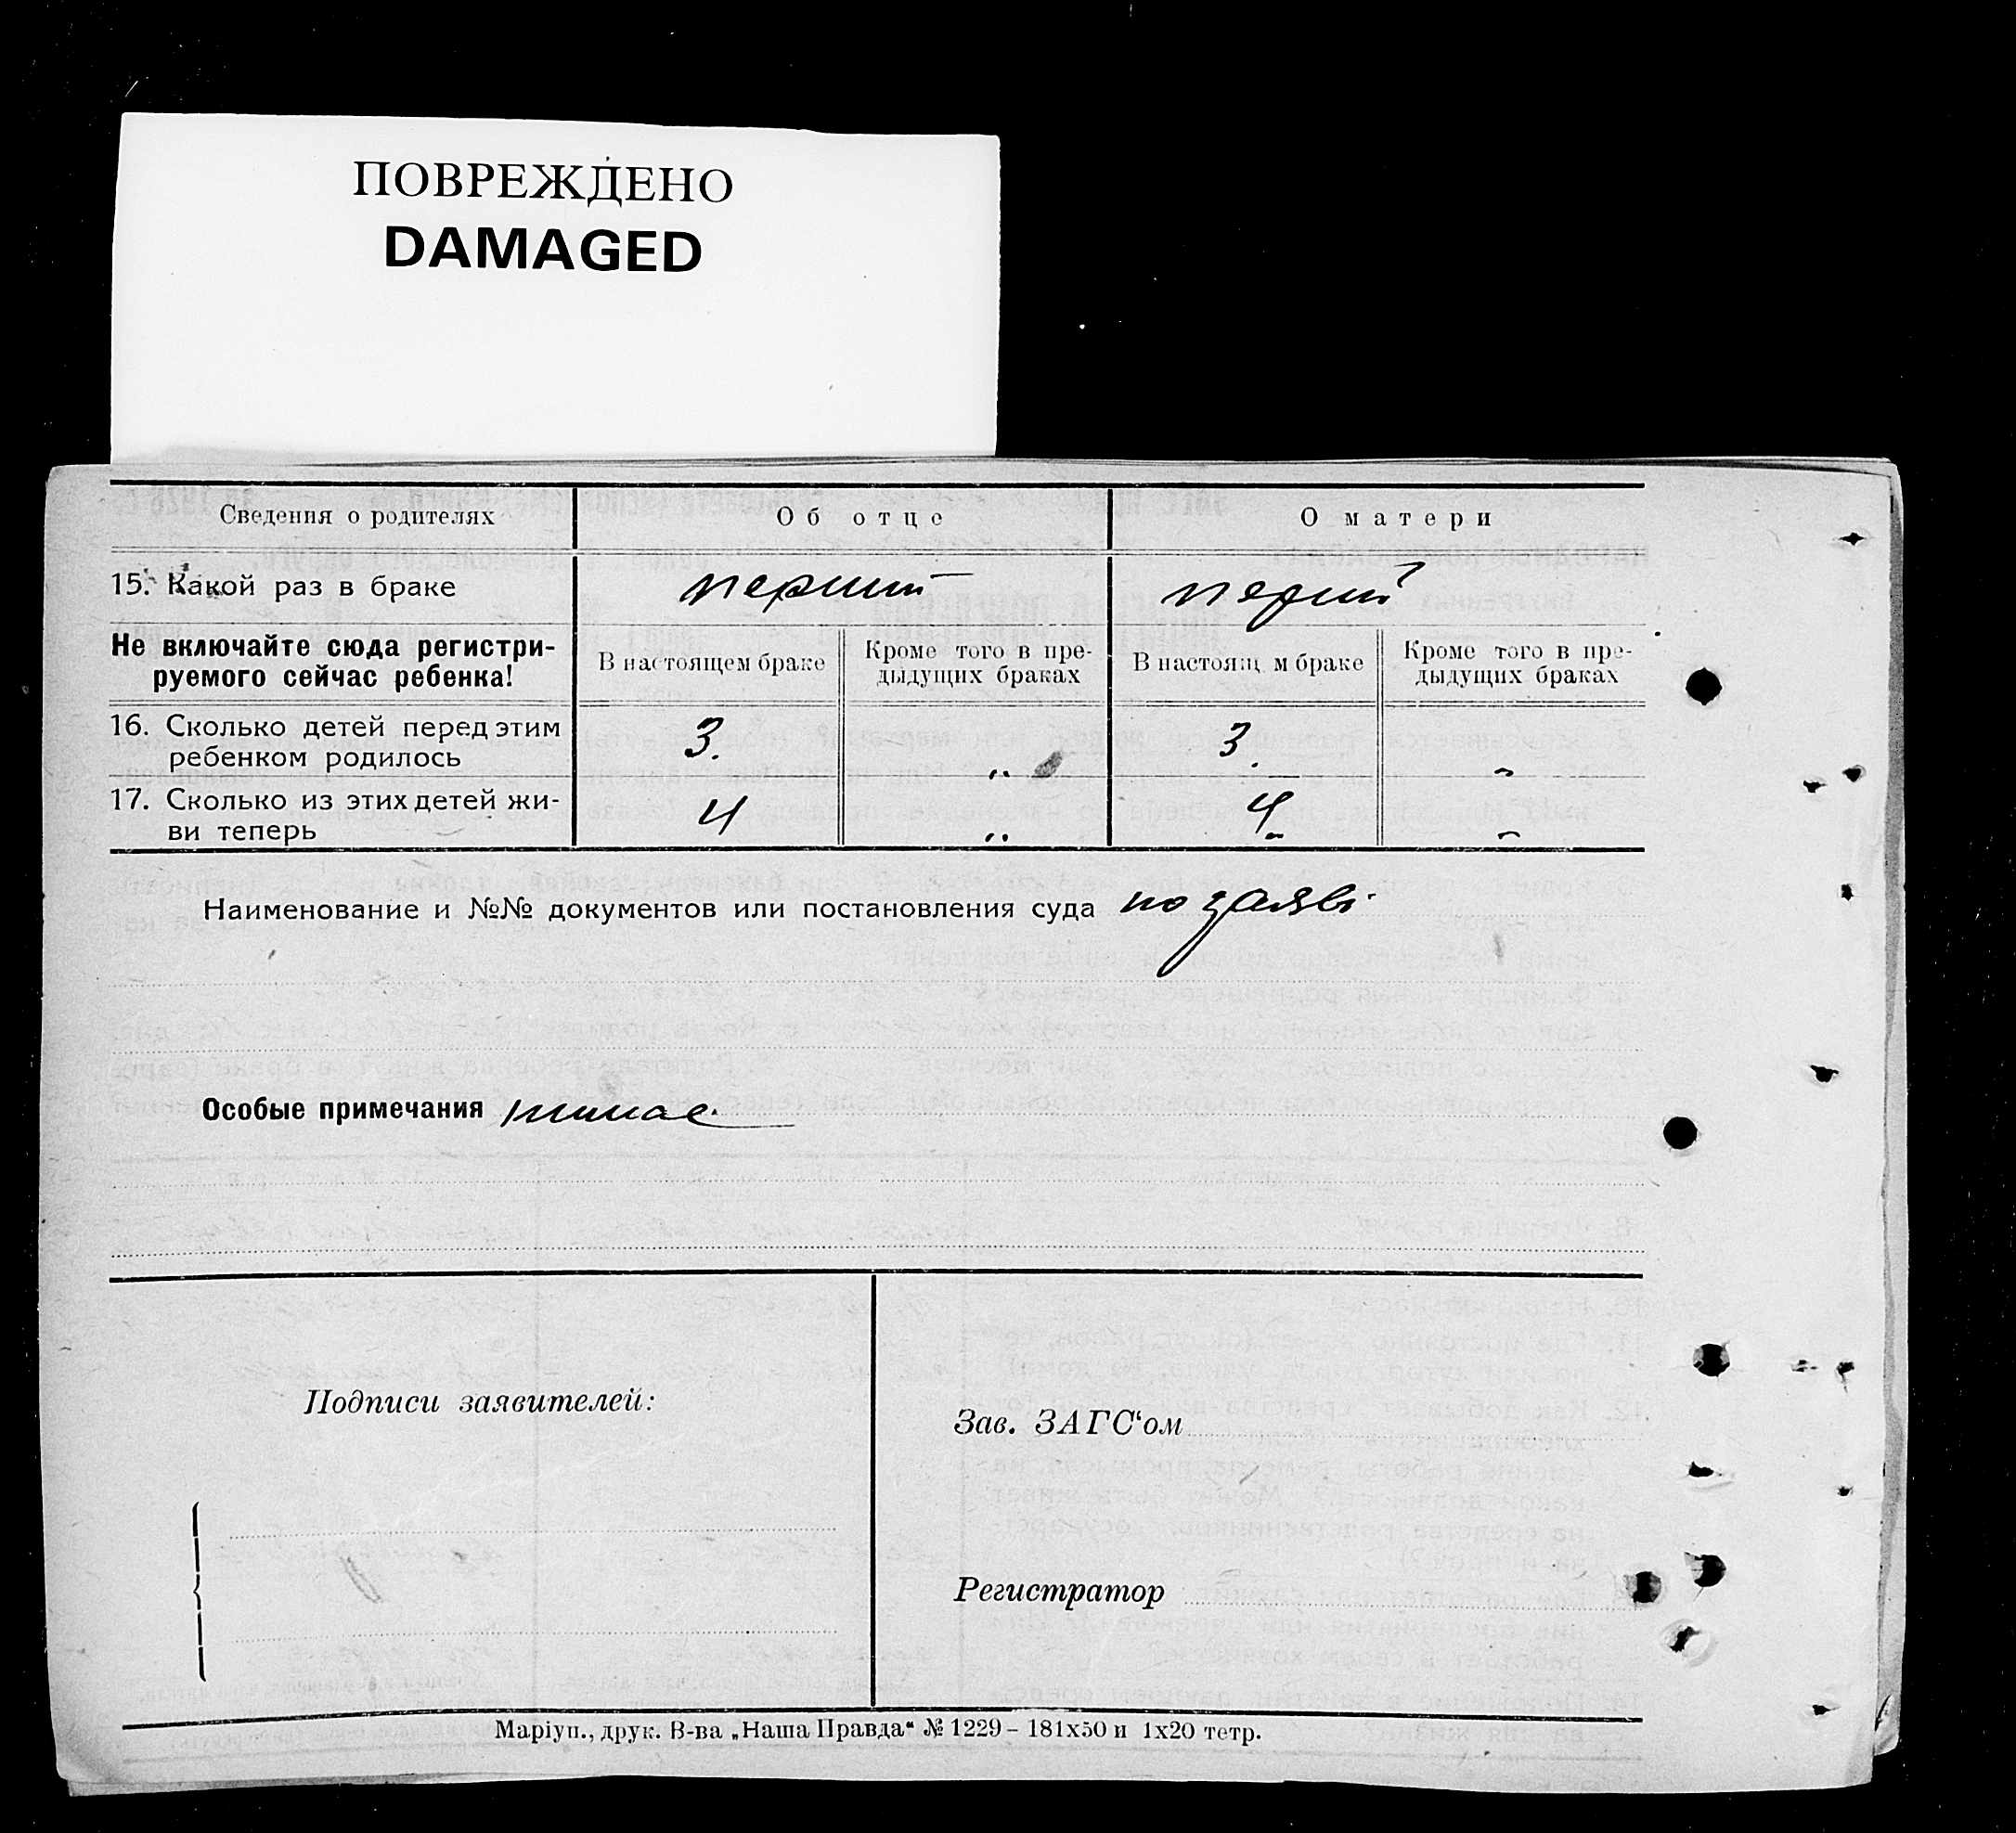 ПОВРЕЖДЕНО
DAMAGED
Сведения о родителях Об отце О матери
15. Какой раз в браке перший перший
Не включайте сюда регистри-
руемого сейчас ребенка!
В настоящем браке
Кроме того в пре-
дыдущих браках
В настоящ м браке
Кроме того в пре-
дыдущих браках
16. Сколько детей перед этим
ребенком родилось
3. „ 3. „
17. Сколько из этих детей жи-
ви теперь
4 „ 4 „
Наименование и №№ документов или постановления суда по заяві
Особые примечания немає
Подписи заявителей:
Зав. ЗАГС‘ом
Регистратор
Маріуп., друк. В-ва „Наша Правда“ № 1229 – 181х50 и 1х20 тетр.